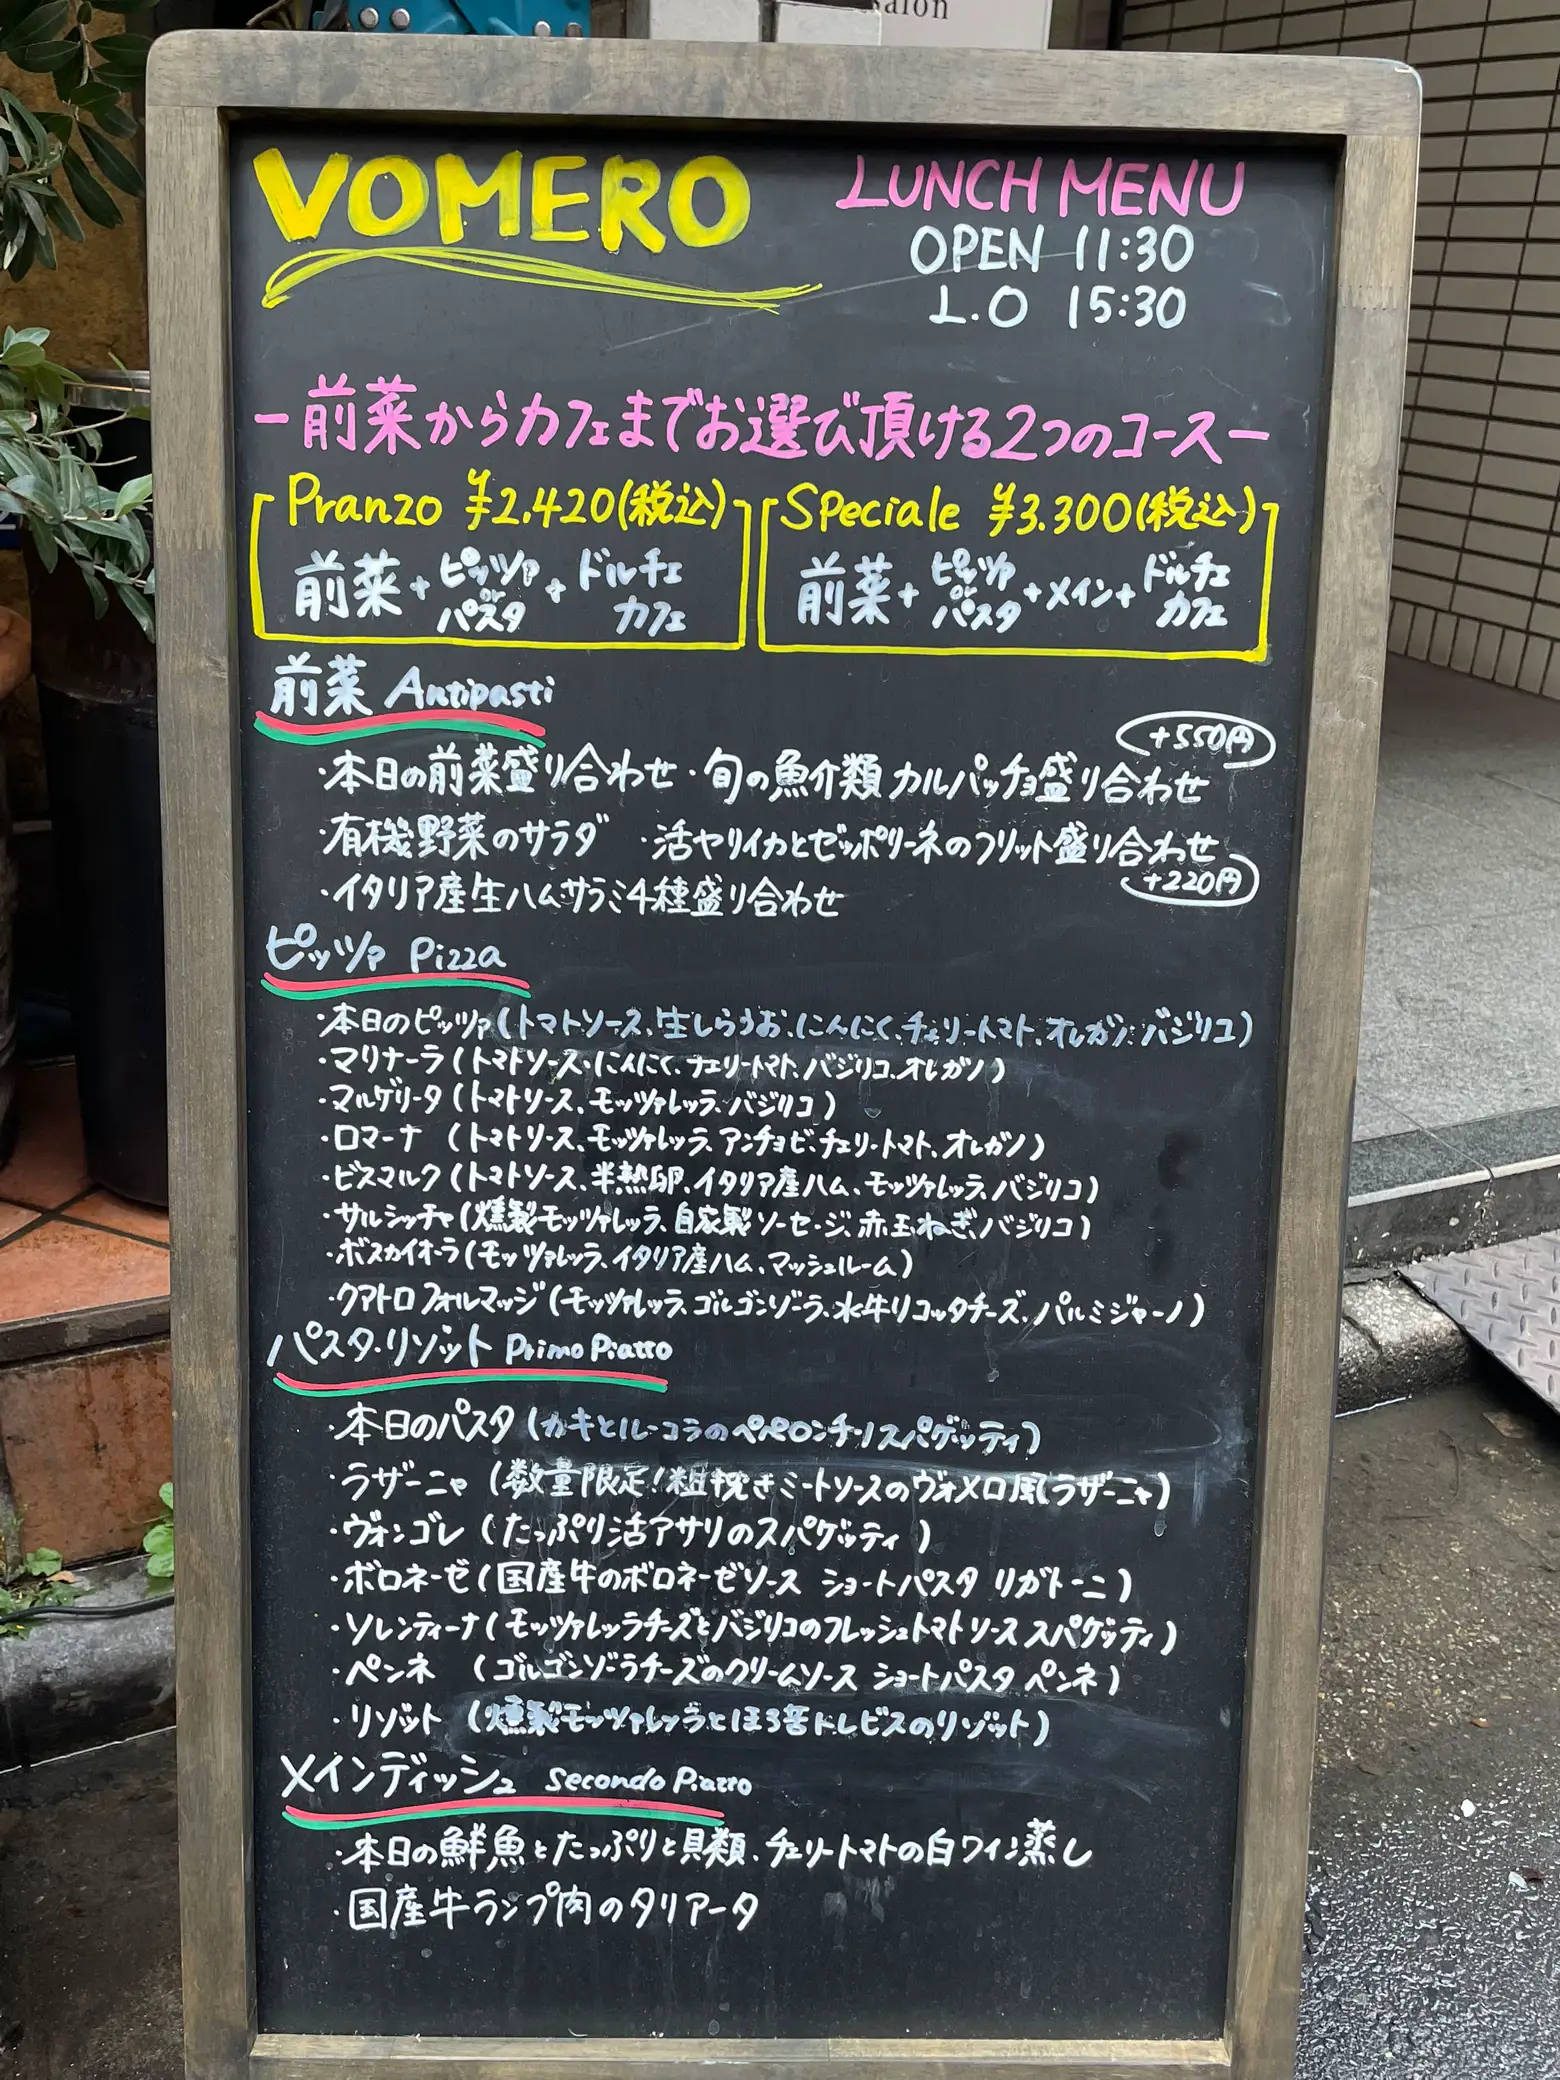 salon
VOMERO
LUNCH MENU
OPEN 11:30
L.O 15:30
-前菜からカフェまでお選び頂ける2つのコース-
Pranzo ¥2.420(税込)
前菜+ピッツァorパスタ+ドルチェカフェ
Speciale ¥3.300(税込)
前菜+ピッツァorパスタ+メイン+ドルチェカフェ
前菜 Antipasti
+550円
・本日の前菜盛り合わせ・旬の魚介類カルパッチョ盛り合わせ
・有機野菜のサラダ ・活ヤリイカとゼッポリーネのフリット盛り合わせ
+220円
・イタリア産生ハムサラミ4種盛り合わせ
ピッツァ Pizza
・本日のピッツァ(トマトソース、生しらうお、にんにく、チェリートマト、オレガノ、バジリコ)
・マリナーラ(トマトソース・にんにく、チェリートマト、バジリコ、オレガノ)
・マルゲリータ(トマトソース、モッツァレッラ、バジリコ)
・ロマーナ (トマトソース、モッツァレッラ、アンチョビ、チェリートマト、オレガノ)
・ビスマルク(トマトソース、半熟卵、イタリア産ハム、モッツァレッラ、バジリコ)
・サルシッチャ(燻製モッツァレッラ、自家製ソーセージ、赤玉ねぎ、バジリコ)
・ボスカイオーラ(モッツァレッラ、イタリア産ハム、マッシュルーム)
・クアトロフォルマッジ(モッツァレッラ、ゴルゴンゾーラ、水牛リコッタチーズ、パルミジャーノ)
パスタ・リゾット Primo Piatto
・本日のパスタ(カキとルーコラのペペロンチーノスパゲッティ)
・ラザーニャ (数量限定!粗挽きミートソースのヴォメロ風ラザーニャ)
・ヴォンゴレ (たっぷり活アサリのスパゲッティ)
・ボロネーゼ(国産牛のボロネーゼソース ショートパスタ リガトーニ)
・ソレンティーナ(モッツァレッラチーズとバジリコのフレッシュトマトソース スパゲッティ)
・ペンネ (ゴルゴンゾーラチーズのクリームソース ショートパスタ ペンネ)
・リゾット (燻製モッツァレッラとほろ苦トレビスのリゾット)
メインディッシュ Secondo Piatto
・本日の鮮魚とたっぷりと貝類、チェリートマトの白ワイン蒸し
・国産牛ランプ肉のタリアータ